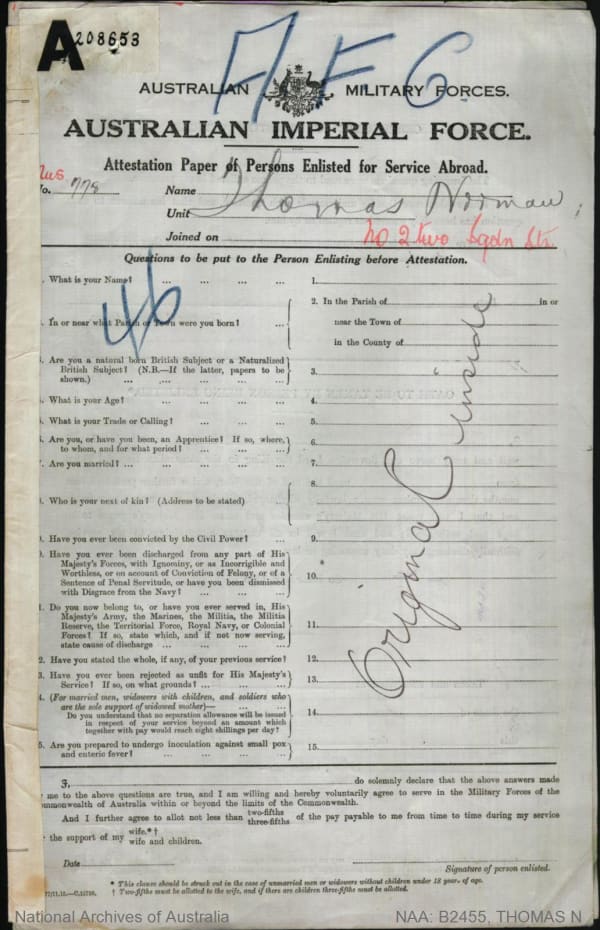 A 208653
A F C
AUSTRALIAN MILITARY FORCES.
AUSTRALIAN IMPERIAL FORCE.
Attestation Paper of Persons Enlisted for Service Abroad.
No. 778 Name
Thomas Norman
Unit
Joined on No 2 two Sqdn
Questions to be put to the Person Enlisting before Attestation.
What is your Name? ... ... ... ... 1.
46
In or near what Parish or Town were you born? ... 2. In the Parish of in or
near the Town of
in the County of
Are you a natural born British Subject or a Naturalized
British Subject? (N.B.—If the latter, papers to be
shown.) ... ... ... ... ... 3.
What is your Age? ... ... ... ... 4.
What is your Trade or Calling? ... ... ... 5.
Are you, or have you been, an Apprentice? If so, where,
to whom, and for what period? ... ... ... 6.
Are you married? ... ... ... ... ... 7.
Who is your next of kin? (Address to be stated) ... 8.
Have you ever been convicted by the Civil Power? ... 9.
Have you ever been discharged from any part of His
Majesty's Forces, with Ignominy, or as Incorrigible and
Worthless, or on account of Conviction of Felony, or of a
Sentence of Penal Servitude, or have you been dismissed
with Disgrace from the Navy? ... ... ... 10.
Do you now belong to, or have you ever served in, His
Majesty's Army, the Marines, the Militia, the Militia
Reserve, the Territorial Force, Royal Navy, or Colonial
Forces? If so, state which, and if not now serving,
state cause of discharge ... ... ... ... 11.
2. Have you stated the whole, if any, of your previous service? 12.
3. Have you ever been rejected as unfit for His Majesty's
Service? If so, on what grounds? ... ... ... 13.
4. (For married men, widowers with children, and soldiers who
are the sole support of widowed mother)— ... ...
Do you understand that no separation allowance will be issued
in respect of your service beyond an amount which
together with pay would reach eight shillings per day? 14.
5. Are you prepared to undergo inoculation against small pox
and enteric fever? ... ... ... ... 15.
Original inside
I, do solemnly declare that the above answers made
me to the above questions are true, and I am willing and hereby voluntarily agree to serve in the Military Forces of the
Commonwealth of Australia within or beyond the limits of the Commonwealth.
And I further agree to allot not less than two-fifths three-fifths of the pay payable to me from time to time during my service
the support of my wife.*† wife and children.
Date
Signature of person enlisted.
* This clause should be struck out in the case of unmarried men or widowers without children under 18 years of age.
† Two-fifths must be allotted to the wife, and if there are children three-fifths must be allotted.
National Archives of Australia NAA: B2455, THOMAS N